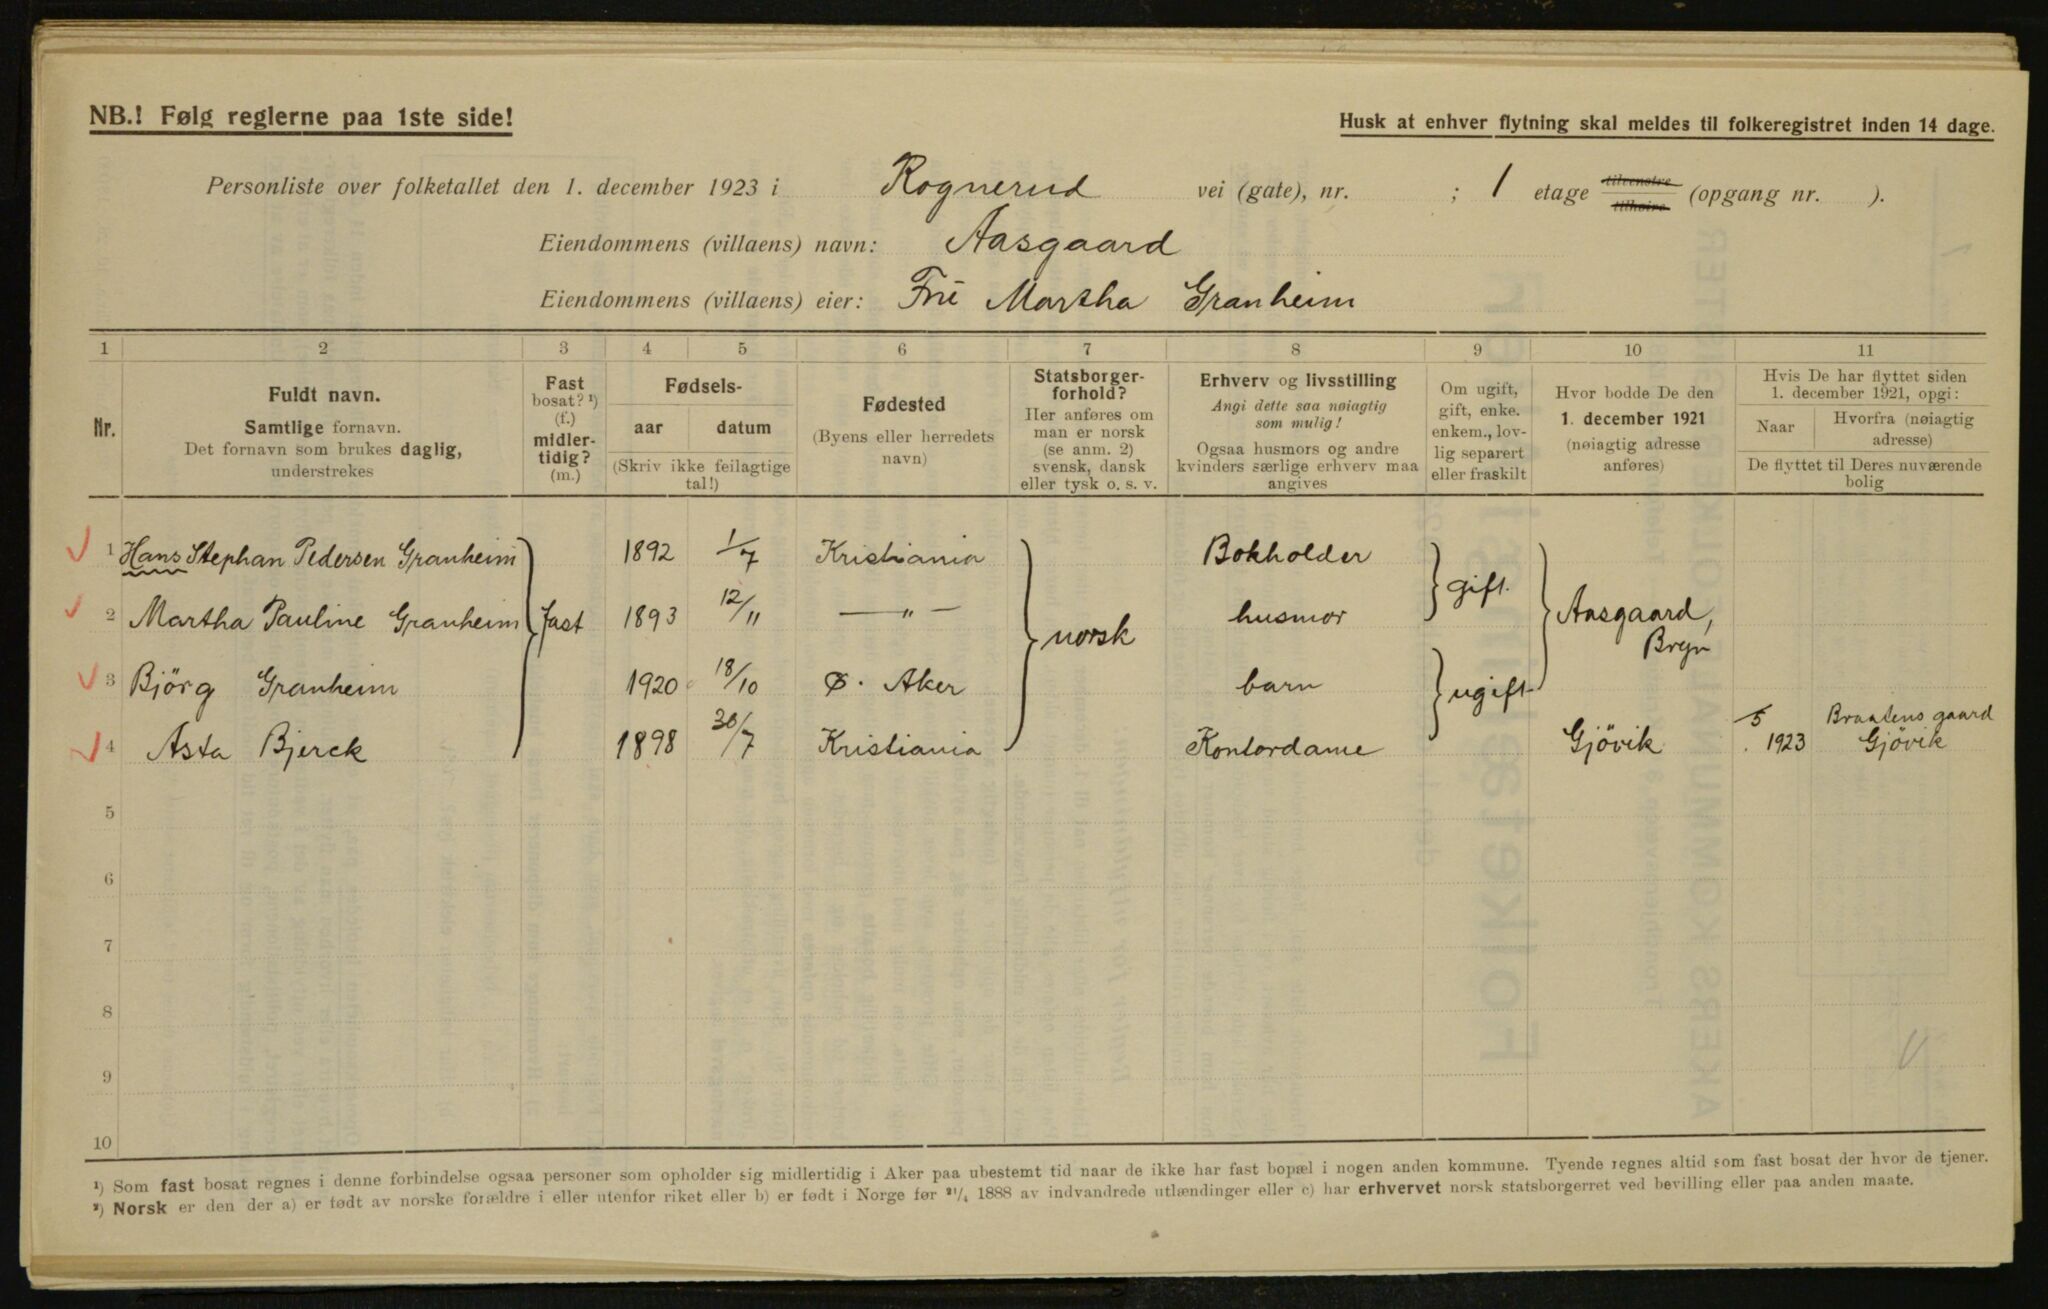 NB.! Følg reglerne paa 1ste side!
Husk at enhver flytning skal meldes til folkeregistret inden 14 dage.
Personliste over folketallet den 1. december 1923 i Rognerud vei (gate), nr. ; 1 etage tilvenstre tilhøire (opgang nr. ).
Eiendommens (villaens) navn: Aasgaard
Eiendommens (villaens) eier: Frü Martha Granheim
1 2 3 4 5 6 7 8 9 10 11
Nr.
Fuldt navn.
Samtlige fornavn.
Det fornavn som brukes daglig,
understrekes
Fast
bosat? ¹)
(f.)
midler-
tidig?
(m.)
Fødsels-
aar datum
(Skriv ikke feilagtige
tal!)
Fødested
(Byens eller herredets
navn)
Statsborger-
forhold?
Her anføres om
man er norsk
(se anm. 2)
svensk, dansk
eller tysk o. s. v.
Erhverv og livsstilling
Angi dette saa nøiagtig
som mulig!
Ogsaa husmors og andre
kvinders særlige erhverv maa
angives
Om ugift,
gift, enke.
enkem., lov-
lig separert
eller fraskilt
Hvor bodde De den
1. december 1921
(nøiagtig adresse
anføres)
Hvis De har flyttet siden
1. december 1921, opgi:
Naar Hvorfra (nøiagtig
adresse)
De flyttet til Deres nuværende
bolig
1 Hans Stephan Pedersen Granheim 1892 1/7 Kristiania Bokholder gift.
2 Martha Pauline Granheim fast 1893 12/11 — „ — norsk husmor Aasgaard,
Bryn
3 Björg Granheim 1920 18/10 Ø. Aker barn ugift
4 Asta Bjerck 1898 30/7 Kristiania Kontordame Gjövik 5 1923 Braatens gaard
Gjövik
5
6
7
8
9
10
¹) Som fast bosat regnes i denne forbindelse ogsaa personer som opholder sig midlertidig i Aker paa ubestemt tid naar de ikke har fast bopæl i nogen anden kommune. Tyende regnes altid som fast bosat der hvor de tjener.
²) Norsk er den der a) er født av norske forældre i eller utenfor riket eller b) er født i Norge før ²¹/₄ 1888 av indvandrede utlændinger eller c) har erhvervet norsk statsborgerret ved bevilling eller paa anden maate.